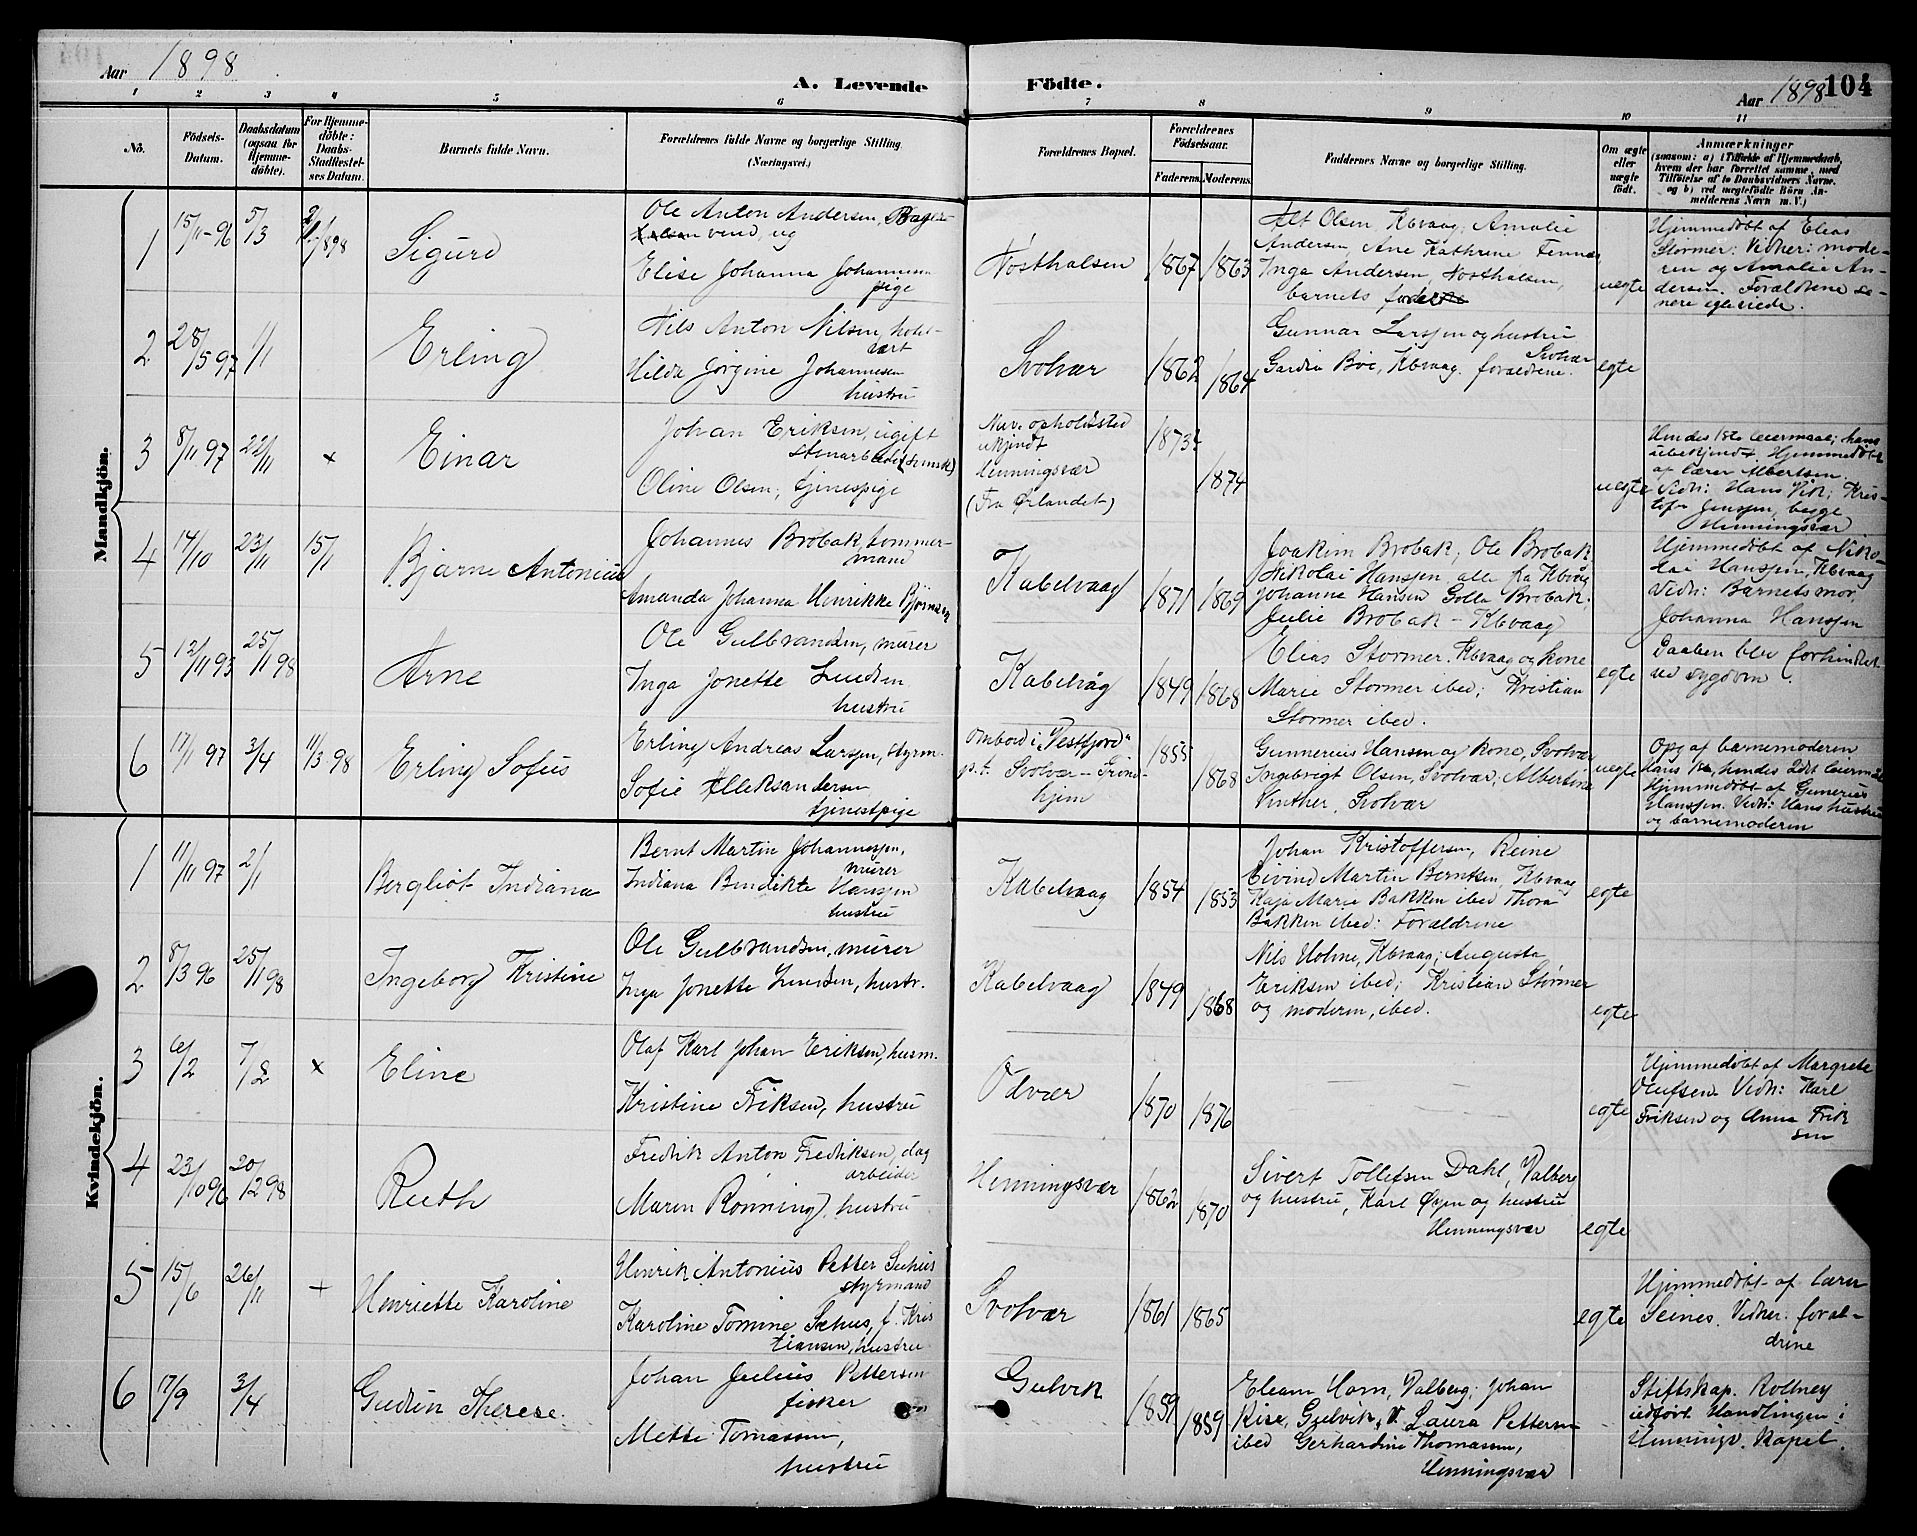 Aar 1898
A. Levende Fødte.
Aar 1898 104
1 2 3 4 5 6 7 8 9 10 11
No.
Fødsels-
Datum.
Daabsdatum
(ogsaa for
Hjemme-
døbte).
For Hjemme-
døbte:
Daabs-
Stadfestel-
ses Datum.
Barnets fulde Navn.
Forældrenes fulde Navne og borgerlige Stilling
(Næringsvei.)
Forældrenes Bopæl.
Forældrenes
Fødselsaar.
Faderens. Moderens.
Faddernes Navne og borgerlige Stilling.
Om ægte
eller
uægte
født.
Anmærkninger
(saasom: a) i Tilfælde af Hjemmedaab,
hvem der har forrettet samme, med
Tilføielse af to Daabsvidners Navne,
og b) ved uægtefødte Börn An-
melderens Navn m. V.)
Mandkjön.
1 15/11-96 5/3
Sigurd
Ole Anton Andersen, Bager-
svend, ug
Elise Johanna Johannesen
pige
Nosthalsen
1867 1863
Alt Olsen, Kbvaag; Amalie
Andersen, Ane Kathrine Finnes
Inga Andersen, Nosthalsen,
barnets
uegte
Hjemmedöbt af Elias
Störmer. Vidner: mode-
ren og Amalie An-
dersen. Foraldrene se-
nere egteviede.
2 28/5 97 1/1
Erling
Nils Anton Nilsen, hotel-
vært
Hilda Jörgine Johannesen
hustru
Svolvær
1862 1864
Gunnar Larssen og hustru
Svolvær
Gardia Boe, Kbvaag. foraldrene.
egte
3 8/11 97 22/11 x
Einar
Johan Eriksen, ugift
stenarbeider (svensk)
Oline Olsen, tjenespige
Nuv. opholdssted
ukjendt
Henningsvær
(Fra Ørlandet)
1873? 1874
uegte
Hendes 1ste leiermaal; hans
ubekjendt. Hjemmedöbt
af lærer Albertsen.
Vidn: Hans Vik; Kris-
tofer Jenssen, begge
Henningsvær
4 14/10 23/11 15/1
Bjarne Antonius
Johannes Brobak, tömmer-
mand
Amanda Johanna Henrikke Björnsen
Kabelvaag
1871 1869
Joakim Brobak; Ole Brobak
Nikolai Hanssen, alle fra Kbvåg
Johanne Hansen Golla Brobak;
Julie Brobak - Kbvaag
Hjemmedöbt af Niko-
lai Hanssen, Kbvaag
Vidn: Barnets mor,
Johanna Hanssen
5 12/11 93 25/1 98
Arne
Ole Gulbrandsen, murer
Inga Jonette Lundsen
hustru
Kabelvåg
1849 1868
Elias Stormer. Kbvaag og kone
Marie Stormer ibid; Kristian
Stormer ibed.
egte
Daaben blev forhindret
ved sygdom.
6 17/1 97 3/4 11/3 98
Erling Sofus
Erling Andreas Larssen, styrm.
Sofie Alleksandersen
tjenestpige
ombord i „Vestfjord"
p.t. Svolvær - Trond-
hjem
1855 1868
Gunnerius Hansen og Kone, Svolvær
Ingebregt Olsen, Svolvær; Albertine
Vinther, Svolvær
uegte
Opg af barnemoderen
Hans 1ste, hendes 2det leiermaal
Hjemmedöbt af Gunerius
Hanssen. Vidn: Hans hustru
og barnemoderen
Kvindekjön.
1 11/11 97 2/1
Bergliot Indiana
Bernt Martin Johannessen,
murer
Indiana Bendikte Hanssen
hustru
Kabelvaag
1854 1853
Johan Kristoffersen, Reine
Eivind Martin Berntsen, Kbvaag
Kaja Marie Bakken ibed Thora
Bakken ibed: Foraldrene
egte
2 8/3 96 25/1 98
Ingeborg Kristine
Ole Gulbrandsen, murer
Inga Jonette Lundsen, hustr.
Kabelvaag
1849 1868
Nils Holme, Kbvaag; Augusta
Eriksen ibed; Kristian Størmer
og moderen, ibed.
egte
3 6/2 7/2 x
Eline
Olaf Karl Johan Eriksen, husm.
Kristine Friksen, hustru
Odvær
1870 1876
egte
Hjemmedöbt af Margrete
Olufsen. Vidn: Karl
Friksen og Anna Frik
sen
4 23/10 96 20/2 98
Ruth
Fredrik Anton Fredriksen, dag
arbeider
Maren Rönning, hustru
Henningsvær
1862 1870
Sivert Tollefsen Dahl, Valberg
og hustru, Karl Øyen og hustru
Henningsvær
egte
5 15/6 26/11 +
Henriette Karoline
Henrik Antonius Petter Sehus
styrmand
Karoline Tomine Sehus, f. Kris
tiansen, hustru
Svolvær
1861 1865
egte
Hjemmedöbt af lærer
Seines. Vidner. foræl-
drene
6 17/9 3/4
Gudrun Therese.
Johan Julius Pettersen
fisker
Mette Tomassen,
hustru
Gulvik
1859 1859
Eleam Horn, Valberg; Johan
Rise, Gulvik, V. Laura Pettersen
ibed Gerhardine Thomassen,
Henningsvær
Stiftskap. Rollney
udfört Handlingen i
Hennings. Kapel.